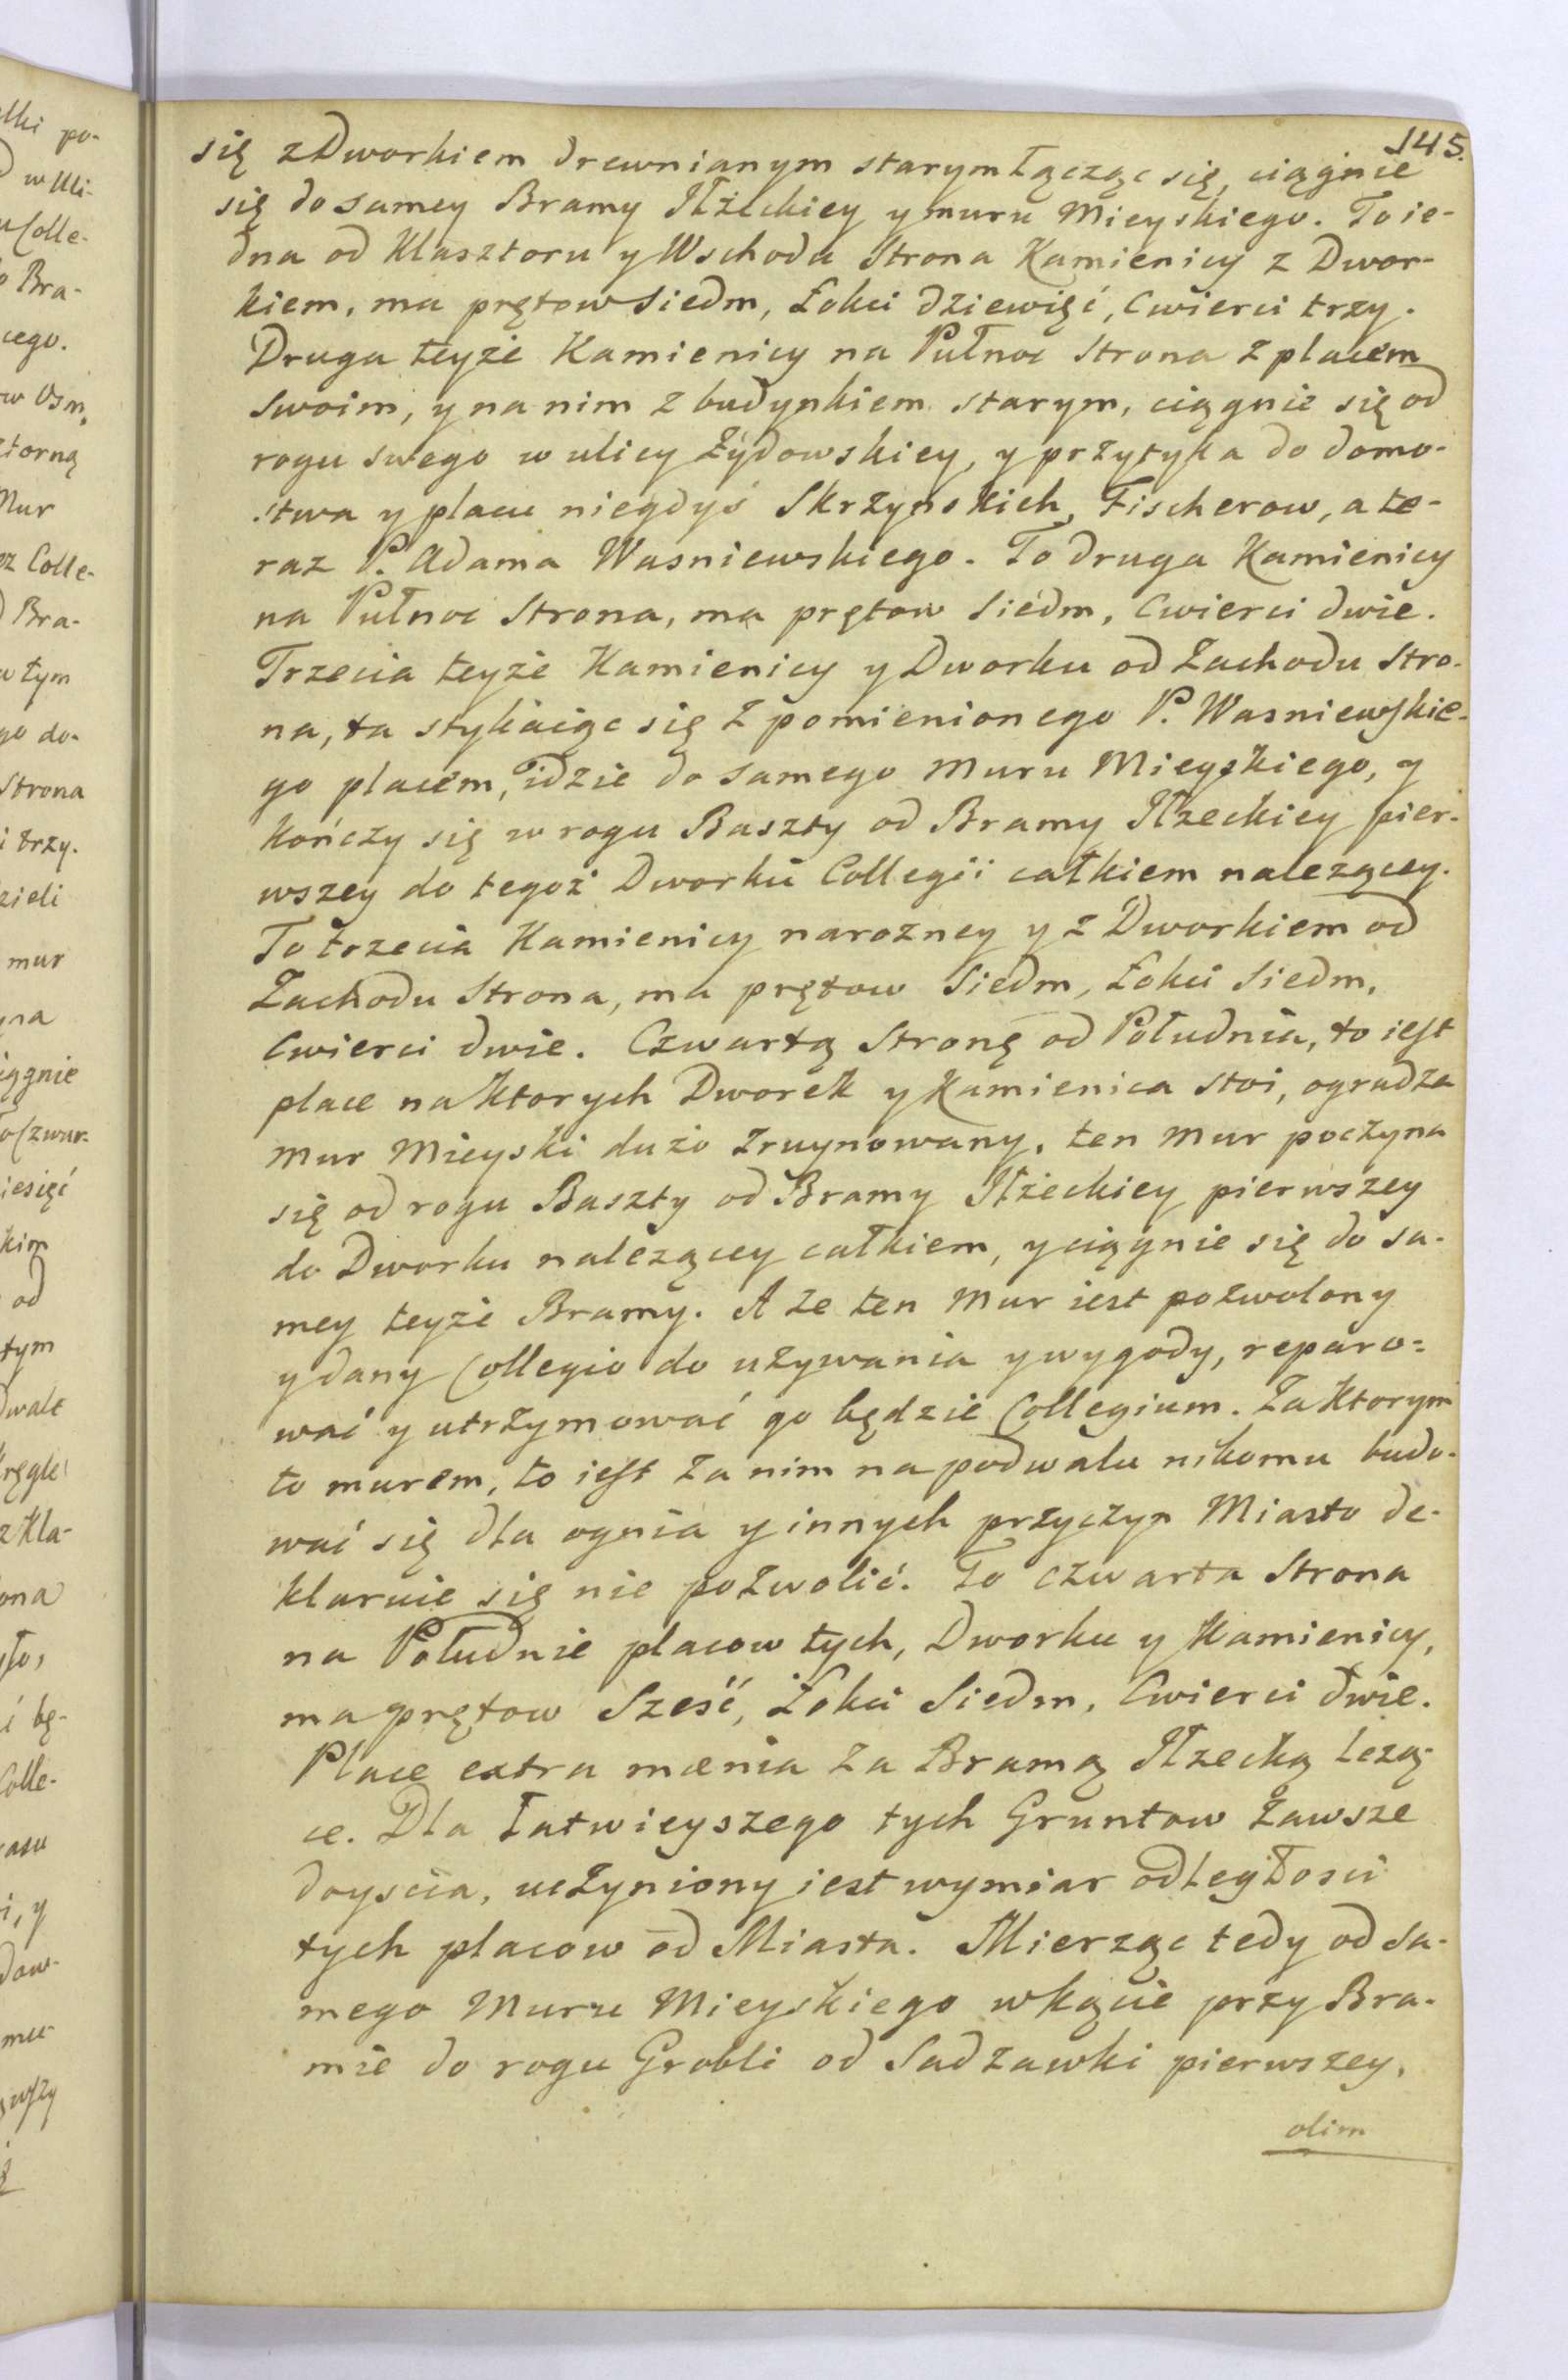 145.
się z Dworkiem drewnianym starym łącząc się, ciągnie
się do samey Bramy Iłżeckiey y muru Mieyskiego. To ie-
dna od Klasztoru y Wschodu Strona Kamienicy z Dwor-
kiem, ma prętow Siedm, Łokci dziewięć, Cwierci trzy.
Druga teyże Kamienicy na Pułnoc Strona z placem
swoim, y na nim z budynkiem starym, ciągnie się od
rogu swego w ulicy Żydowskiey, y przytyka do domo-
stwa y placu niegdyś Skrzynskich, Fischerow, a te-
raz P. Adama Wasniewskiego. To druga Kamienicy
na Pułnoc Strona, ma prętow Siedm, Cwierci dwie.
Trzecia teyże Kamienicy y Dworku od Zachodu Stro-
na, ta stykaiąc się z pomienionego P. Wasniewskie-
go placem, idzie do samego Muru Mieyskiego, y
kończy się w rogu Baszty od Bramy Iłzeckiey pier-
wszey do tegoż Dworku Collegii całkiem nalezącey.
To trzecia Kamienicy narozney y z Dworkiem od
Zachodu Strona, ma prętow Siedm, Łokci Siedm,
Cwierci dwie. Czwartą Stronę od Południa, to iest
place na ktorych Dworek y Kamienica stoi, ogradza
Mur Mieyski dużo zruynowany, ten Mur poczyna
się od rogu Baszty od Bramy Iłżeckiey pierwszey
do Dworku nalezącey całkiem, y ciągnie się do sa-
mey teyże Bramy. A ze ten Mur iest pozwolony
y dany Collegio do używania y wygody, reparo=
wać y utrzymować go będzie Collegium. Za ktorym
to murem, to iest za nim na podwalu nikomu budo-
wać się dla ognia y innych przyczyn Miasto de-
klaruie się nie pozwolić. To czwarta Strona
na Południe placow tych, Dworku y Kamienicy,
ma prętow Sześć, Łokci Siedm, Cwierci dwie.
Place extra mænia za Bramą Iłzecką lezą-
ce. Dla łatwieyszego tych Gruntow zawsze
doyscia, uczyniony iest wymiar odległosci
tych placow od Miasta. Mierząc tedy od sa-
mego Muru Mieyskiego w kącie przy Bra-
mie do rogu Grobli od Sadzawki pierwszey,
olim